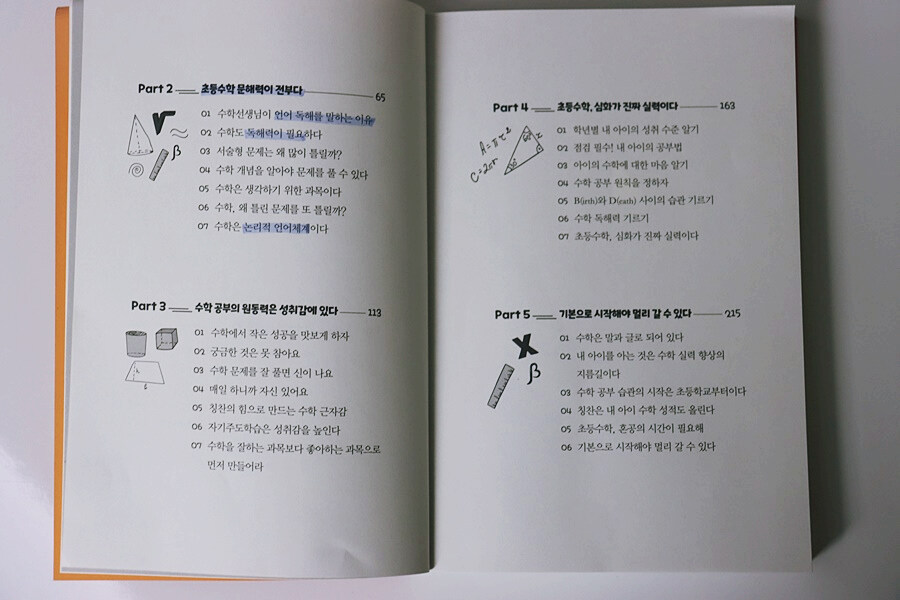 Part 2 초등수학 문해력이 전부다 65
01 수학선생님이 언어 독해를 말하는 이유
02 수학도 독해력이 필요하다
03 서술형 문제는 왜 많이 틀릴까?
04 수학 개념을 알아야 문제를 풀 수 있다
05 수학은 생각하기 위한 과목이다
06 수학, 왜 틀린 문제를 또 틀릴까?
07 수학은 논리적 언어체계이다
β
Part 3 수학 공부의 원동력은 성취감에 있다 113
01 수학에서 작은 성공을 맛보게 하자
02 궁금한 것은 못 참아요
03 수학 문제를 잘 풀면 신이 나요
04 매일 하니까 자신 있어요
05 칭찬의 힘으로 만드는 수학 근자감
06 자기주도학습은 성취감을 높인다
07 수학을 잘하는 과목보다 좋아하는 과목으로
먼저 만들어라
Part 4 초등수학, 심화가 진짜 실력이다 163
A=πr²
C=2πr
x
01 학년별 내 아이의 성취 수준 알기
02 점검 필수! 내 아이의 공부법
03 아이의 수학에 대한 마음 알기
04 수학 공부 원칙을 정하자
05 B(irth)와 D(eath) 사이의 습관 기르기
06 수학 독해력 기르기
07 초등수학, 심화가 진짜 실력이다
Part 5 기본으로 시작해야 멀리 갈 수 있다 215
X
β
01 수학은 말과 글로 되어 있다
02 내 아이를 아는 것은 수학 실력 향상의
지름길이다
03 수학 공부 습관의 시작은 초등학교부터이다
04 칭찬은 내 아이 수학 성적도 올린다
05 초등수학, 혼공의 시간이 필요해
06 기본으로 시작해야 멀리 갈 수 있다